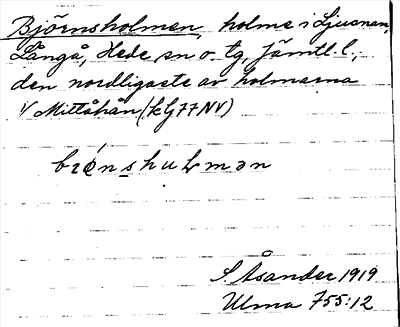 Björnsholmen, holme i Ljusnan,
Långå, Hede sn o. tg, Jämtl. l.,
den nordligaste av holmarna
i/ Mittåhån (kg 77 NV)
S Åsander 1919
Ulma 755:12